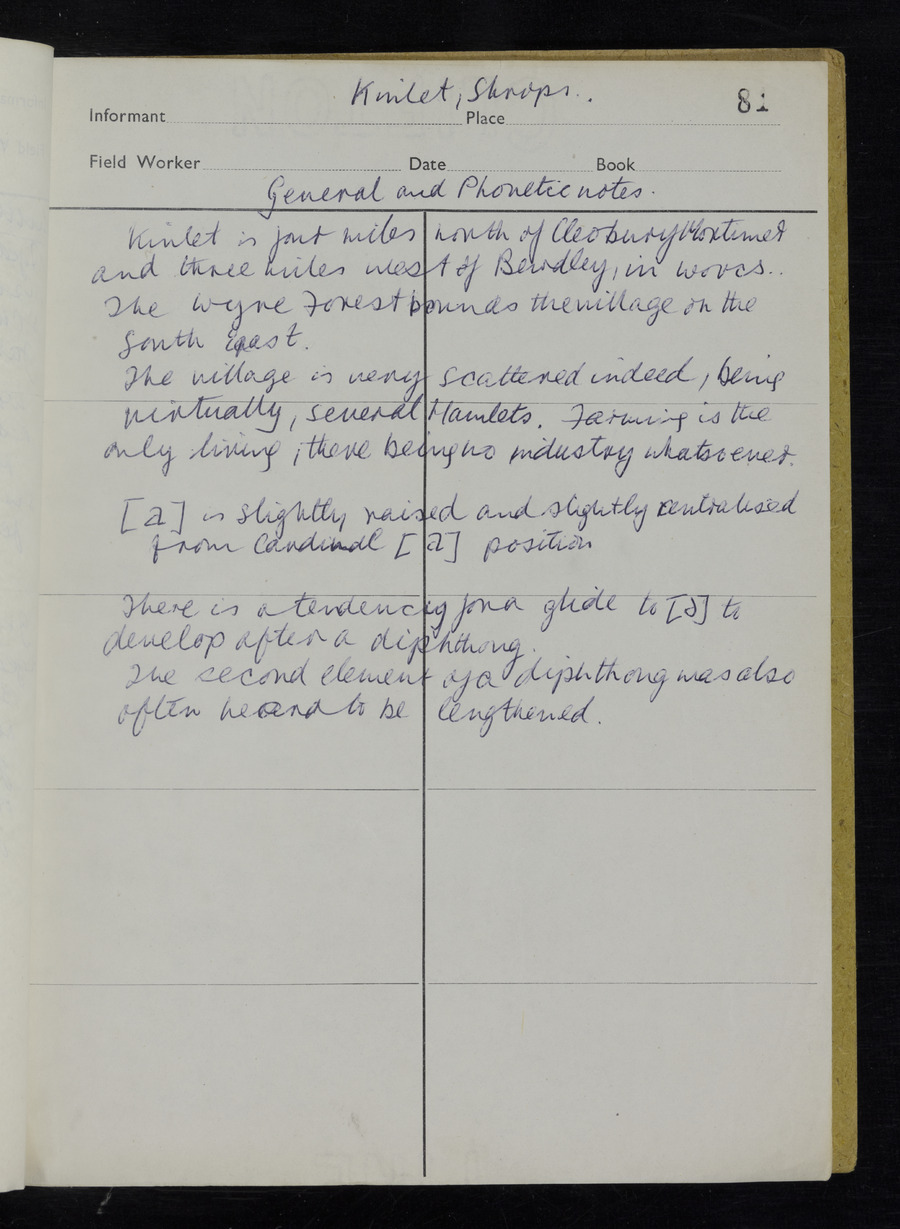 Kinlet, Shrops..
81
Informant Place
Field Worker Date Book
General and Phonetic notes.
Kinlet is four miles north of Cleobury Mortimer
and three miles west of Bewdley, in worcs..
The Wyre Forest bounds the village on the
South east.
The village is very scattered indeed, being
virtually, several Hamlets. Farming is the
only living, there being no industry whatsoever.
[a] is slightly raised and slightly centralised
from Cardinal [a] position
There is a tendency for a glide to [ə] to
develop after a diphthong.
The second element of a diphthong was also
often heard to be lengthened.